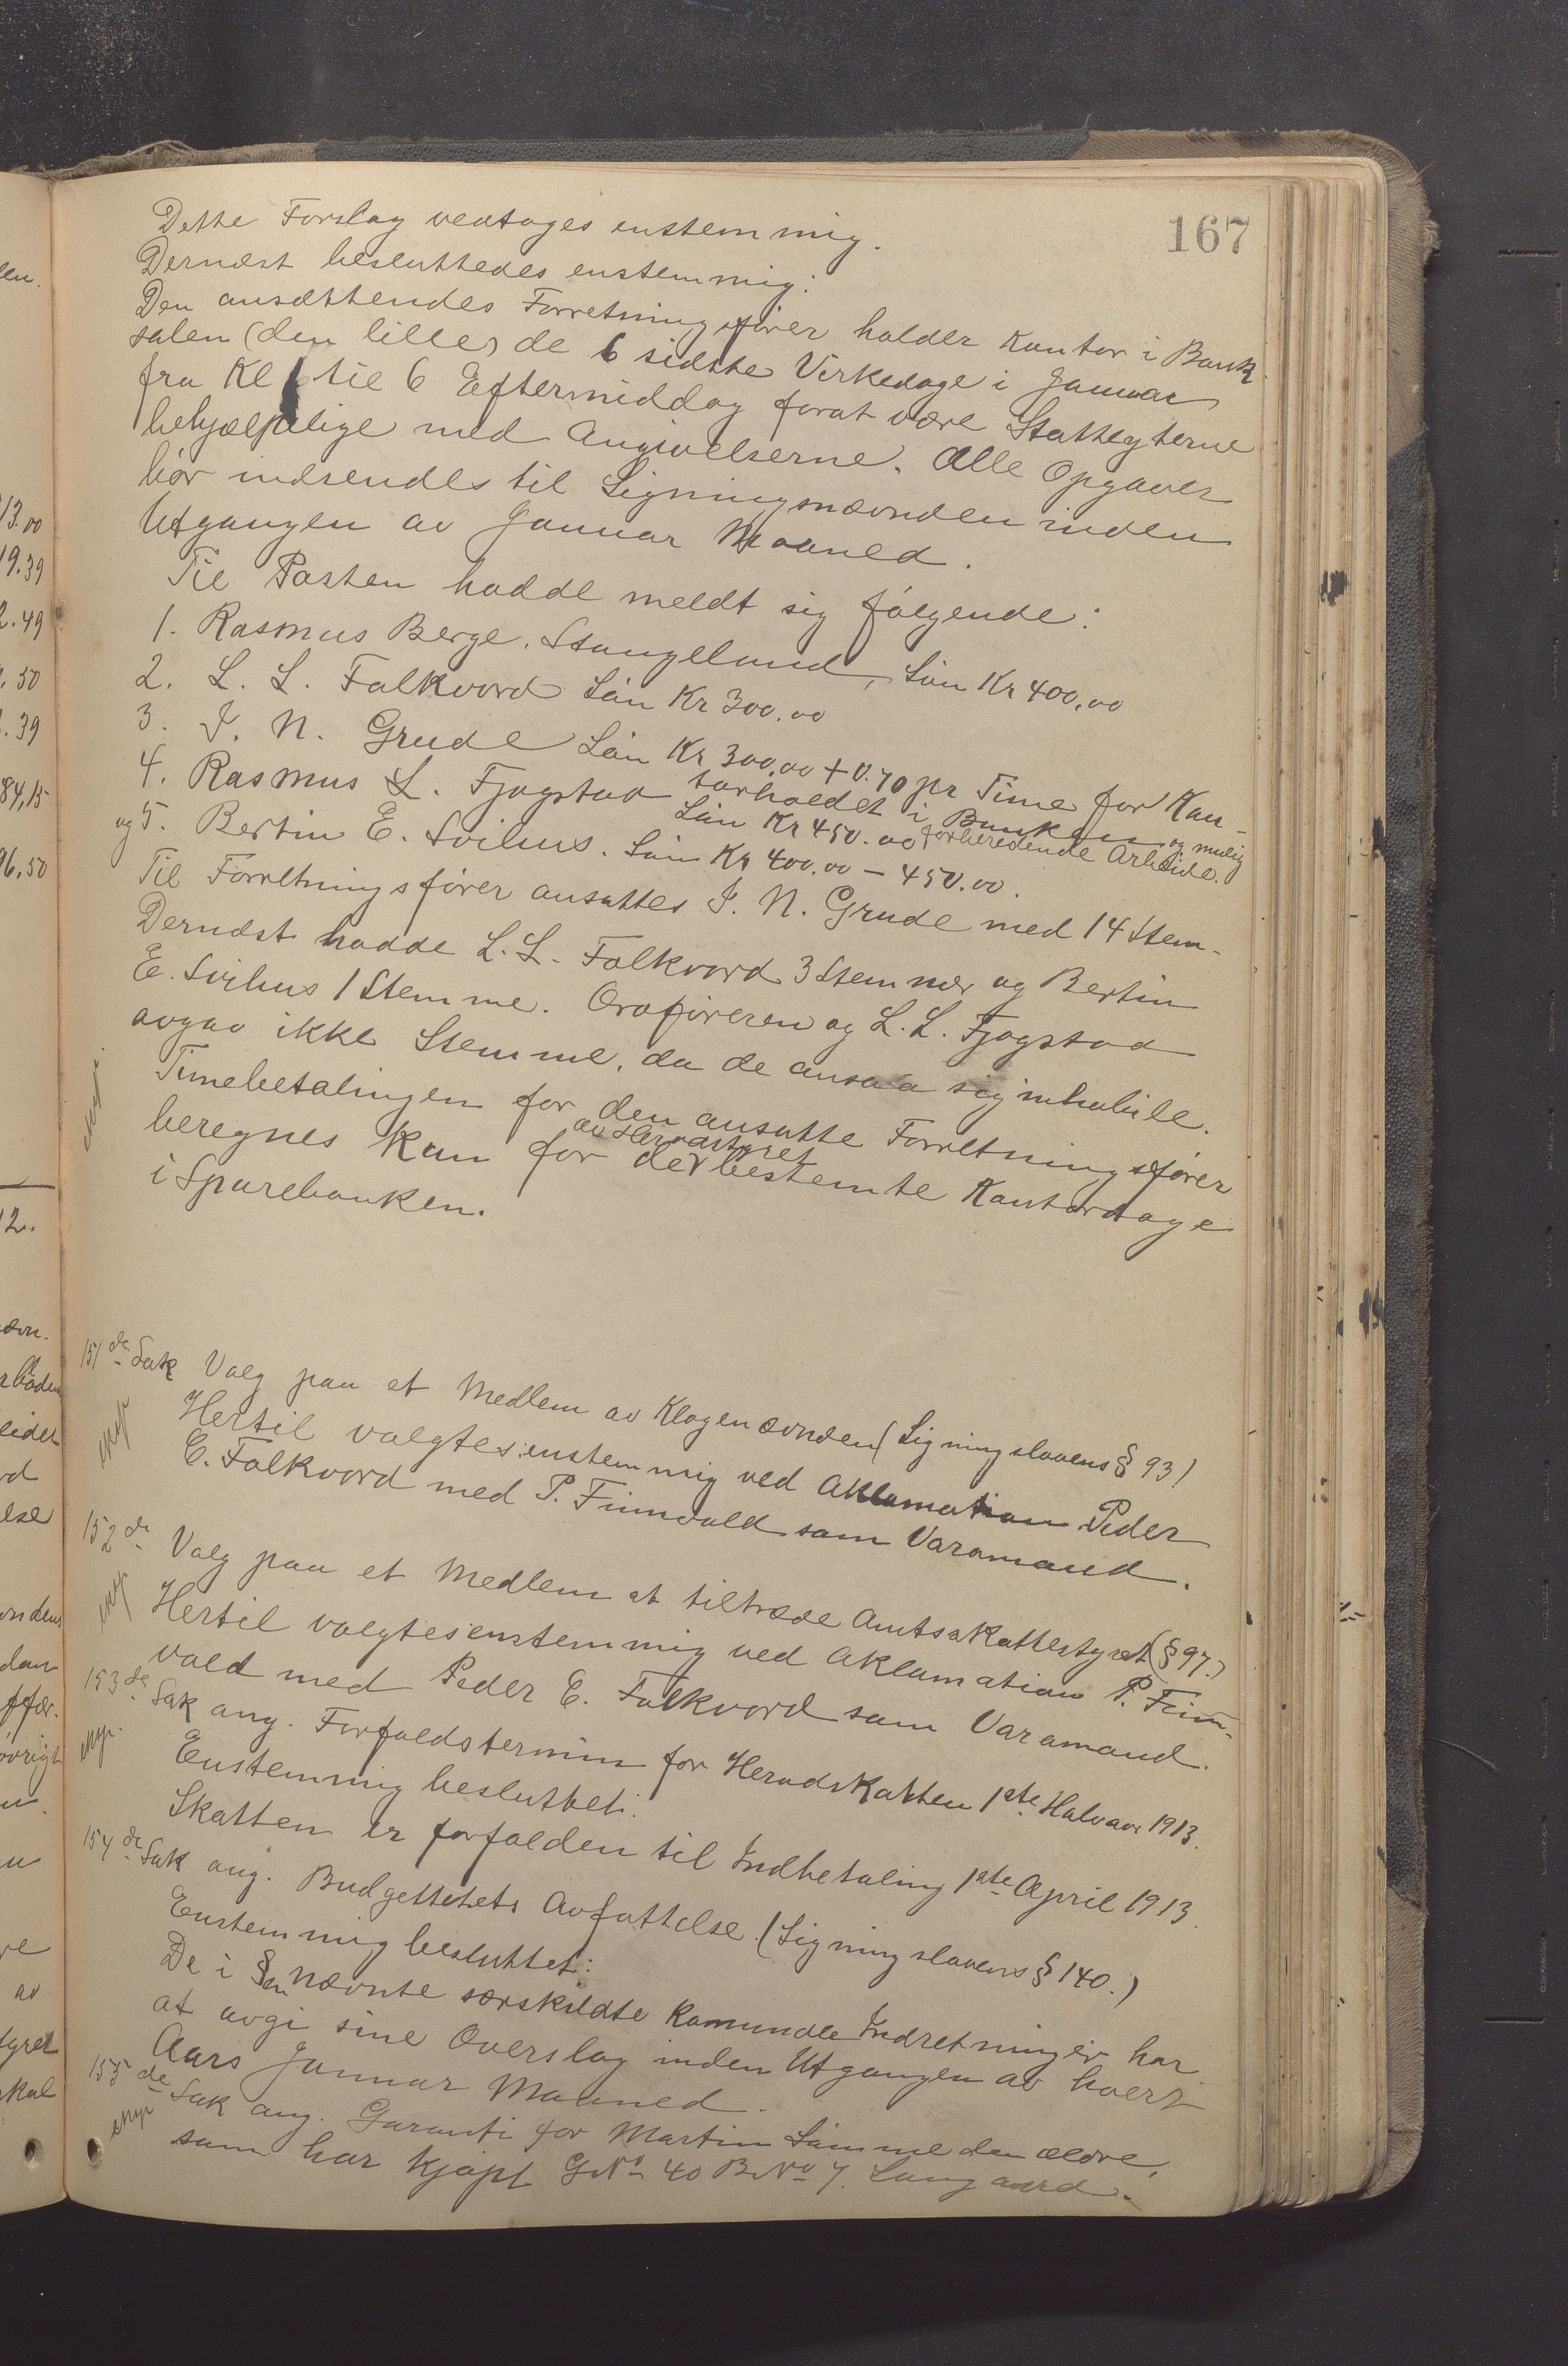 167
Dette Forslag vedtages enstemmig.
Dernæst besluttedes enstemmig:
Den ansættendes Forretningsfører holder Kontor i Bank
salen (den lille) de 6 sidste Virkedage i Januar
fra Kl 1 til 6 Eftermiddag forat være Skatteyterne
behjælpelige med Angivelserne. Alle Opgaver
bør indsendes til Ligningsnævnden inden
Utgangen av Januar Maaned.
Til Posten hadde meldt sig følgende:
1. Rasmus Berge. Stangeland, Løn Kr 400,00
2. L. L. Folkvord Løn Kr 300.00
3. I. N. Grude Løn Kr 300.00 + 0.70 pr Time for Kon-
torholdet i Banken og mulig
4. Rasmus L. Fjogstad Løn Kr 450.00 forberedende Arbeide.
og 5. Bertin E. Svihus. Løn Kr 400.00 – 450.00.
Til Forretningsfører ansattes I. N. Grude med 14 Stem-
Dernæst hadde L. L. Folkvord 3 Stemmer og Bertin
E. Svihus 1 Stemme. Ordføreren og L. L. Fjogstad
avgav ikke Stemme, da de ansaa sig inhabile.
Timebetalingen for den ansatte Forretningsfører
av Herredstyret
beregnes kun for de bestemte Kontordage
i Sparebanken.
151 de Sak Valg paa et Medlem av Klagenævnden (Ligningslovens § 93)
Hertil valgtes enstemmig ved Aklamation Peder
E. Folkvord med P. Finnvald som Varamand.
152 de Valg paa et Medlem at tiltræde Amtsskattestyret (§ 97.)
Hertil valgtes enstemmig ved Aklamation P. Finn-
vald med Peder E. Folkvord som Varamand.
153 de Sak ang. Forfaldstermin for Herdskatten 1ste Halvaar 1913.
Enstemmig besluttet:
Skatten er forfalden til Indbetaling 1ste April 1913.
154 de Sak ang. Budgettets Avfattelse. (Ligningslovens § 140.)
Enstemmig besluttet:
De i §en nævnte særskildte Komunale Indretninger har
at avgi sine Overslag inden Utgangen av hvert
Aars Januar Maaned.
155 de Sak ang. Garanti for Martin Lamme den ældre,
som har kjøpt GNo 40 BNo 7. Lungaard.